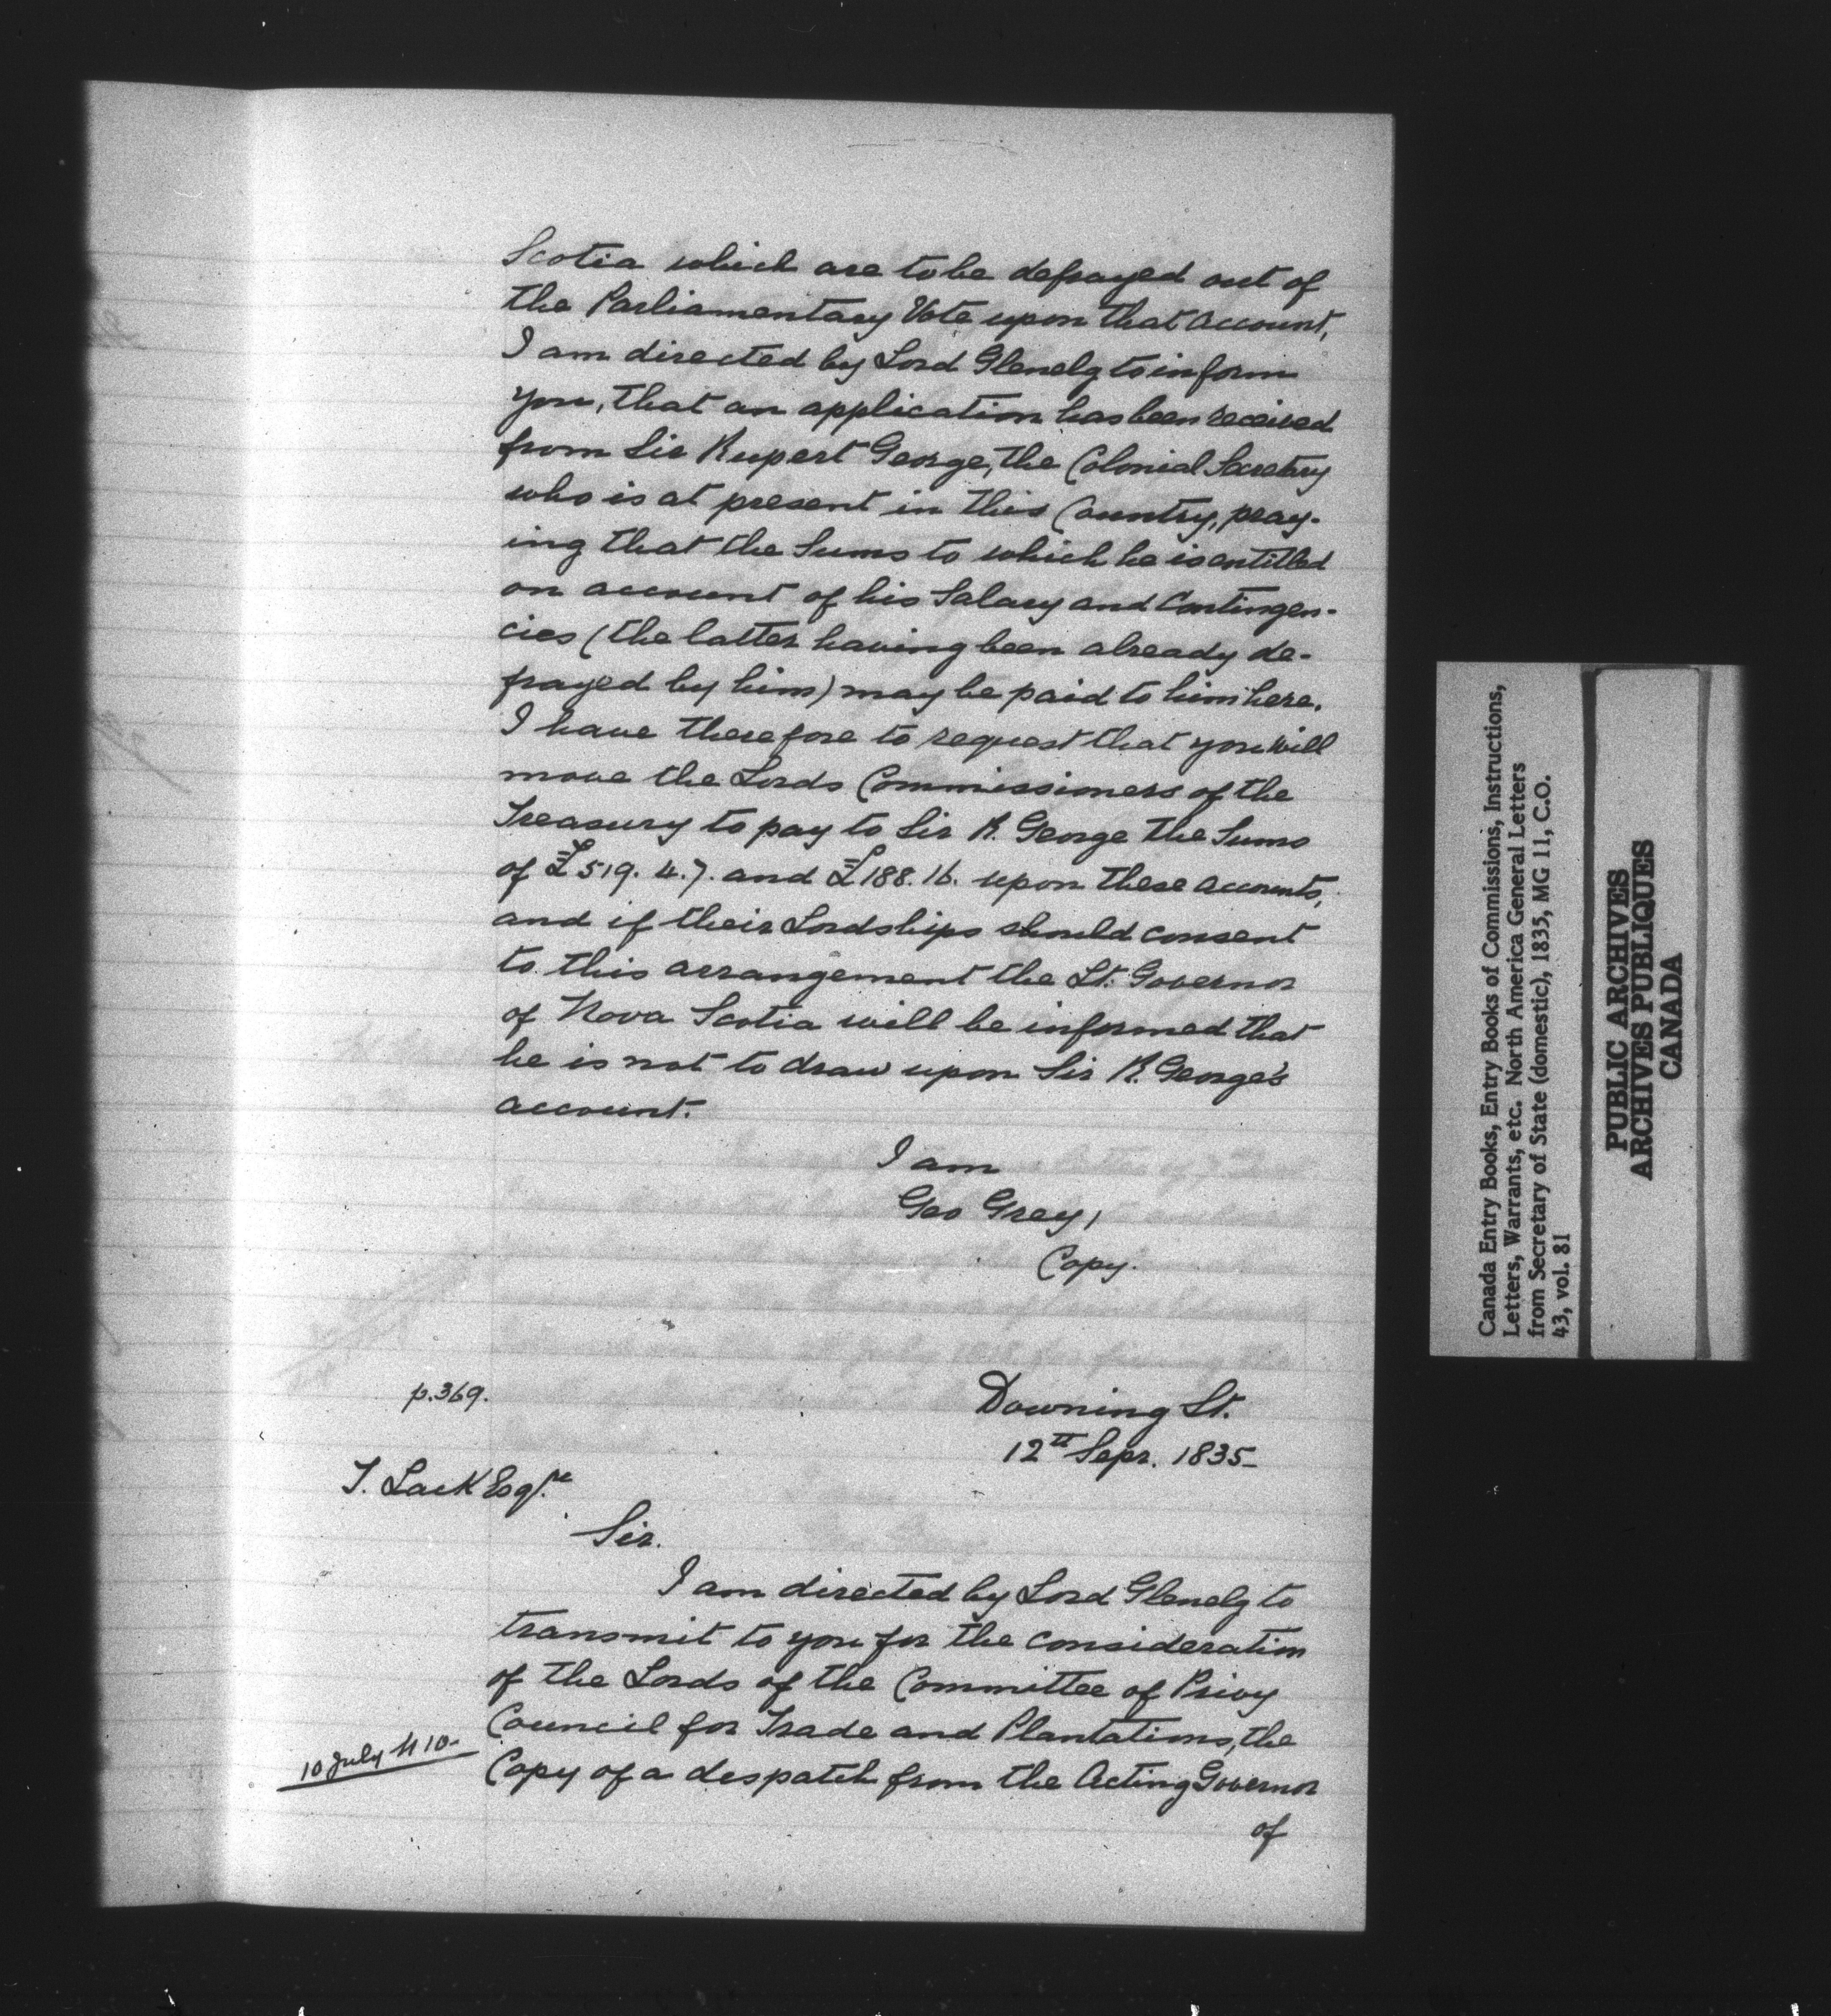 Scotia which are to be defrayed out of
the Parliamentary Vote upon that account,
I am directed by Lord Glenelg to inform
you, that an application has been received
from Sir Rupert George, the Colonial Secretary
who is at present in this Country, pray-
ing that the Sums to which he is entitled
on account of his Salary and Contingen-
cies (the latter having been already de-
frayed by him) may be paid to him here.
I have therefore to request that you will
move the Lords Commissioners of the
Treasury to pay to Sir R. George the Sums
of £519. 4. 7. and £188. 16. upon these accounts,
and if their Lordships should consent
to this arrangement the Lt. Governor
of Nova Scotia will be informed that
he is not to draw upon Sir R. George's
account.
I am
Geo Grey,
Copy.
p. 369.
Downing St.
12th Sepr. 1835
T. Lack Esqre
Sir.
I am directed by Lord Glenelg to
transmit to you for the consideration
of the Lords of the Committee of Privy
Council for Trade and Plantations, the
10 July N 10
Copy of a despatch from the Acting Governor
of
Canada Entry Books, Entry Books of Commissions, Instructions,
Letters, Warrants, etc. North America General Letters
from Secretary of State (domestic), 1835, MG 11, C.O.
43, vol. 81
PUBLIC ARCHIVES
ARCHIVES PUBLIQUES
CANADA